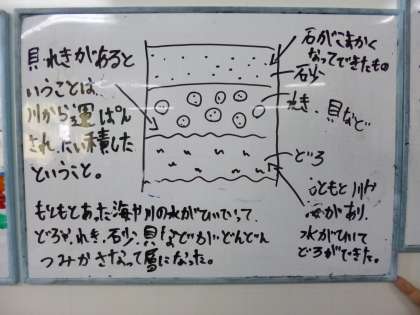 貝、れきがあると
いうことは
川から運ぱん
され、たい積した
ということ。
石がこまかく
なってできたもの
石少
れき、貝など
どろ
もともと川や
海があり、
水がひいて
どろができた。
もともとあった海や川の水がひいていって、
どろや、れき、石少、貝などがいどんどん
つみかさなって層になった。